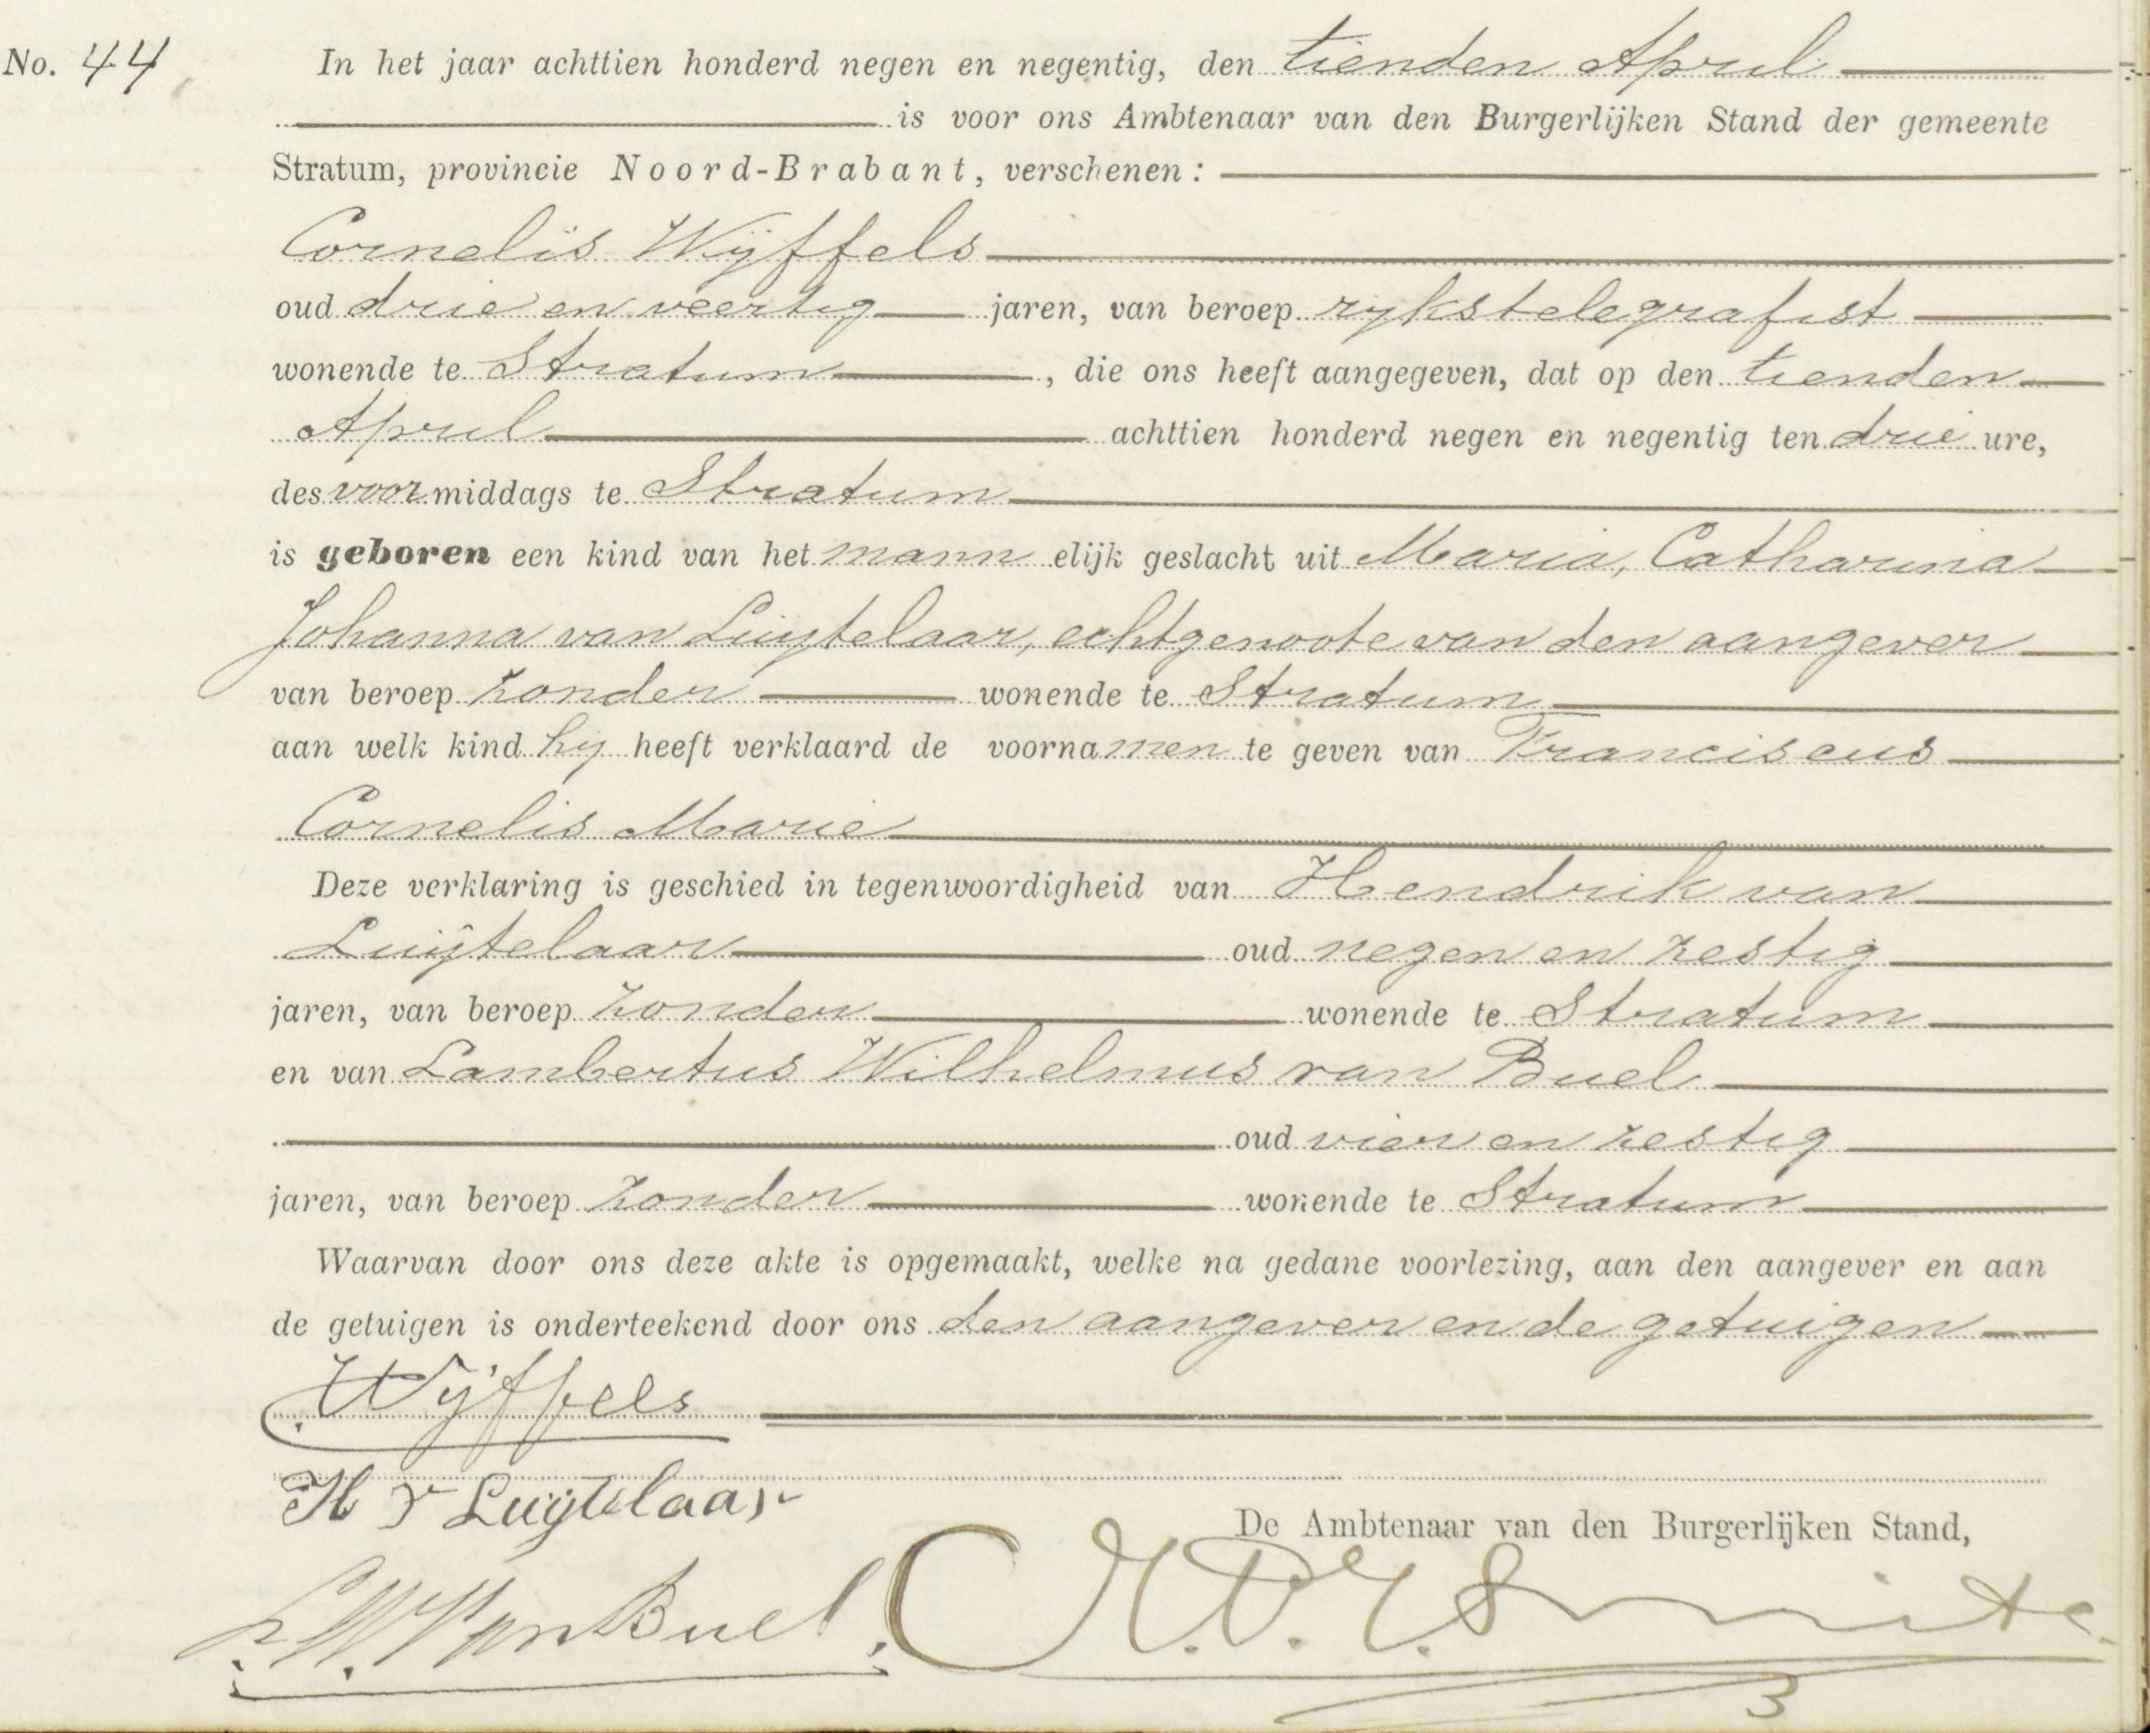 No. 44 In het jaar achttien honderd negen en negentig, den tienden April
is voor ons Ambtenaar van den Burgerlijken Stand der gemeente
Stratum, provincie Noord-Brabant, verschenen:
Cornelis Wijffels
oud drie en veertig jaren, van beroep rykstelegrafist
wonende te Stratum, die ons heeft aangegeven, dat op den tienden
April achttien honderd negen en negentig ten drie ure,
des voormiddags te Stratum
is geboren een kind van het mannelijk geslacht uit Maria, Catharina
Johanna van Luijtelaar, echtgenoote van den aangever
van beroep zonder wonende te Stratum
aan welk kind hij heeft verklaard de voornamen te geven van Franciscus
Cornelis Marie
Deze verklaring is geschied in tegenwoordigheid van Hendrik van
Luijtelaar oud negen en zestig
jaren, van beroep zonder wonende te Stratum
en van Lambertus Wilhelmus van Buel
oud vier en zestig
jaren, van beroep zonder wonende te Stratum
Waarvan door ons deze akte is opgemaakt, welke na gedane voorlezing, aan den aangever en aan
de getuigen is onderteekend door ons den aangever en de getuigen
Wijffels
H v Luijtelaar
De Ambtenaar van den Burgerlijken Stand,
L.W. Van Buel.